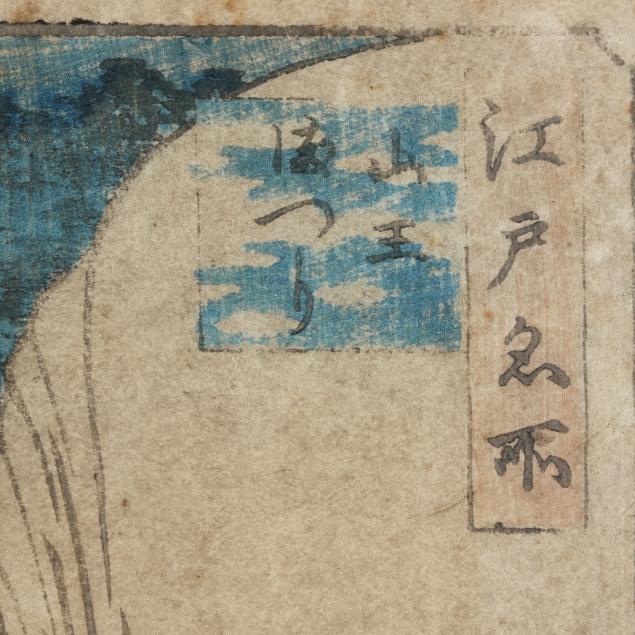 江戸名所
山王
満つり